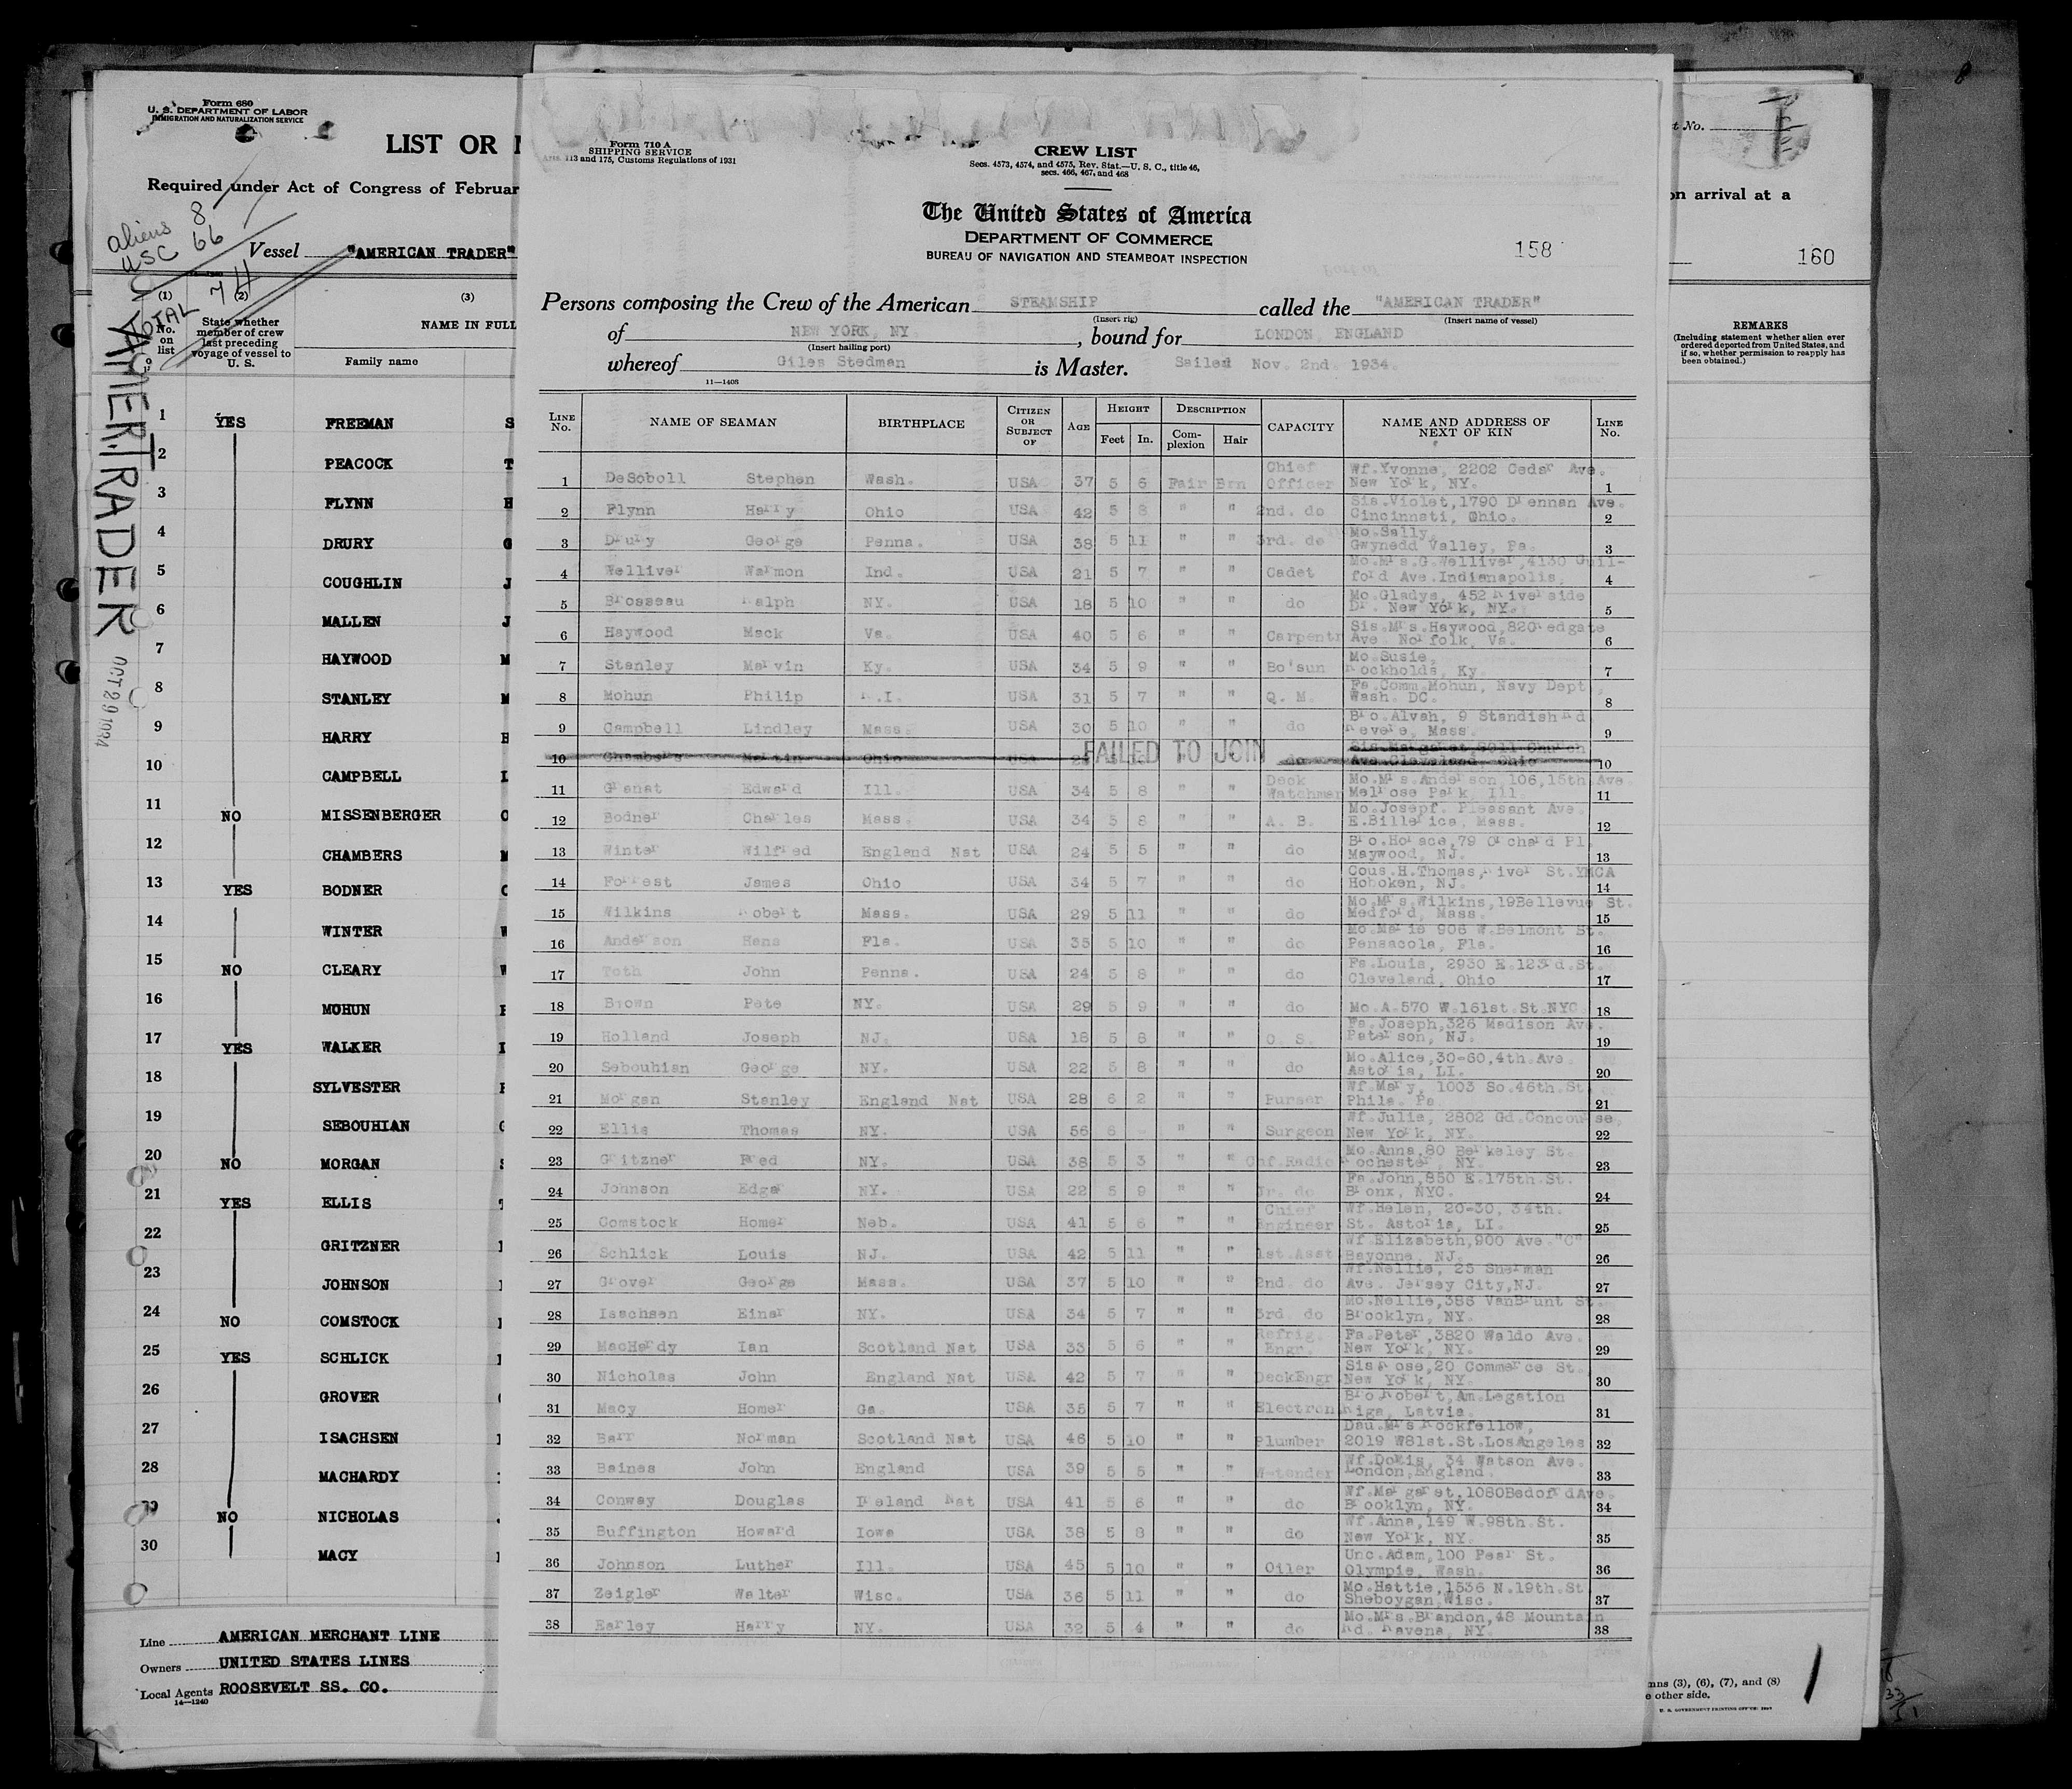 Form 680
U. S. DEPARTMENT OF LABOR
IMMIGRATION AND NATURALIZATION SERVICE
LIST OR
Required under Act of Congress of Februar
aliens 8
USC 66
TOTAL 74
Vessel "AMERICAN TRADER"
AMER. TRADER
OCT 29 1934
(1) (2) (3)
No. on list
State whether member of crew last preceding voyage of vessel to U. S.
NAME IN FULL
Family name
1 YES FREEMAN S
2 PEACOCK T
3 FLYNN H
4 DRURY G
5 COUGHLIN J
6 MALLEN J
7 HAYWOOD M
8 STANLEY M
9 HARRY
10 CAMPBELL L
11 NO MISSENBERGER
12 CHAMBERS M
13 YES BODNER C
14 WINTER W
15 NO CLEARY
16 MOHUN
17 YES WALKER
18 SYLVESTER
19 SEBOUHIAN
20 NO MORGAN
21 YES ELLIS
22 GRITZNER
23 JOHNSON
24 NO COMSTOCK
25 YES SCHLICK
26 GROVER
27 ISACHSEN
28 MACHARDY
29 NO NICHOLAS
30 MACY
Line AMERICAN MERCHANT LINE
Owners UNITED STATES LINES
Local Agents ROOSEVELT SS. CO.
14—1240
Form 710 A
SHIPPING SERVICE
Arts. 113 and 175, Customs Regulations of 1931
CREW LIST
Secs. 4573, 4574, and 4575, Rev. Stat.—U. S. C., title 46,
secs. 466, 467, and 468
The United States of America
DEPARTMENT OF COMMERCE
BUREAU OF NAVIGATION AND STEAMBOAT INSPECTION
158
Persons composing the Crew of the American STEAMSHIP called the "AMERICAN TRADER"
(Insert rig) (Insert name of vessel)
of NEW YORK, NY, bound for LONDON, ENGLAND
(Insert hailing port)
whereof Giles Stedman is Master. Sailed Nov. 2nd. 1934.
11—1408
LINE No. NAME OF SEAMAN BIRTHPLACE CITIZEN OR SUBJECT OF AGE HEIGHT Feet In. DESCRIPTION Complexion Hair CAPACITY NAME AND ADDRESS OF NEXT OF KIN LINE No.
1 DeSoboll Stephen Wash. USA 37 5 6 Fair Brn Chief Officer Wf.Yvonne, 2202 Cedar Ave. New York, NY. 1
2 Flynn Harry Ohio USA 42 5 8 " " 2nd. do Sis.Violet,1790 Drennan Ave. Cincinnati, Ohio. 2
3 Drury George Penna. USA 38 5 11 " " 3rd. do Mo.Sally, Gwynedd Valley, Pa. 3
4 Welliver Warmon Ind. USA 21 5 7 " " Cadet Mo.Mrs.G.Welliver,4130 Guil-ford Ave.Indianapolis, 4
5 Brosseau Ralph NY. USA 18 5 10 " " do Mo.Gladys, 452 Riverside Dr. New York, NY. 5
6 Haywood Mack Va. USA 40 5 6 " " Carpentr Sis.Mrs.Haywood,820 edgate Ave. Norfolk, Va. 6
7 Stanley Marvin Ky. USA 34 5 9 " " Bo'sun Mo.Susie, Rockholds, Ky. 7
8 Mohun Philip R.I. USA 31 5 7 " " Q. M. Fa.Comm.Mohun, Navy Dept. Wash. DC. 8
9 Campbell Lindley Mass. USA 30 5 10 " " do Bro.Alvah, 9 Standish Rd Revere, Mass. 9
10 Chambers Martin Ohio USA FAILED TO JOIN do Ave.Cleveland, Ohio 10
11 Granat Edward Ill. USA 34 5 8 " " Deck Watchman Mo.Mrs.Anderson,106,15th.Ave. Melrose Park, Ill. 11
12 Bodner Charles Mass. USA 34 5 8 " " A. B. Mo.Josepf. Pleasant Ave. E.Billerica, Mass. 12
13 Winter Wilfred England Nat USA 24 5 5 " " do Bro.Horace,79 Orchard Pl. Maywood, NJ. 13
14 Forrest James Ohio USA 34 5 7 " " do Cous.H.Thomas,River St.YMCA Hoboken, NJ. 14
15 Wilkins Robert Mass. USA 29 5 11 " " do Mo.Mrs.Wilkins,19Bellevue St. Medford, Mass. 15
16 Anderson Hans Fla. USA 35 5 10 " " do Mo.Marie 906 W.Belmont St. Pensacola, Fla. 16
17 Toth John Penna. USA 24 5 8 " " do Fa.Louis, 2930 E.123rd.St. Cleveland, Ohio 17
18 Brown Pete NY. USA 29 5 9 " " do Mo.A.570 W.161st.St.NYC. 18
19 Holland Joseph NJ. USA 18 5 8 " " O. S. Fa.Joseph,326 Madison Ave. Paterson, NJ. 19
20 Sebouhian George NY. USA 22 5 8 " " do Mo.Alice,30-60,4th.Ave. Astoria, LI. 20
21 Morgan Stanley England Nat USA 28 6 2 " " Purser Wf.Mary, 1003 So.46th.St. Phila. Pa. 21
22 Ellis Thomas NY. USA 56 6 - " " Surgeon Wf.Julie, 2802 Gd.Concourse, New York, NY. 22
23 Gritzner Fred NY. USA 38 5 3 " " Chf.Radio Mo.Anna,80 Berkeley St. Rochester, NY. 23
24 Johnson Edgar NY. USA 22 5 9 " " Jr. do Fa.John,850 E.175th.St. Bronx, NYC. 24
25 Comstock Homer Neb. USA 41 5 6 " " Chief Engineer Wf.Helen, 20-30, 34th. St. Astoria, LI. 25
26 Schlick Louis NJ. USA 42 5 11 " " 1st.Asst Wf Elizabeth,900 Ave."C" Bayonne, NJ. 26
27 Grover George Mass. USA 37 5 10 " " 2nd. do Wf.Nellie, 25 Sherman Ave. Jersey City,NJ. 27
28 Isachsen Einar NY. USA 34 5 7 " " 3rd. do Mo.Nellie,386 VanBrunt St. Brooklyn, NY. 28
29 MacHardy Ian Scotland Nat USA 33 5 6 " " Refrig. Engr. Fa.Peter,3820 Waldo Ave. New York, NY. 29
30 Nicholas John England Nat USA 42 5 7 " " DeckEngr Sis Rose,20 Commerce St. New York, NY. 30
31 Macy Homer Ga. USA 35 5 7 " " Electron Bro.Robert,Am.Legation Riga, Latvia. 31
32 Barr Norman Scotland Nat USA 46 5 10 " " Plumber Dau.Mrs Rockfellow, 2019 W81st.St.LosAngeles 32
33 Baines John England USA 39 5 5 " " W-tender Wf.Doris, 34 Watson Ave. London,England. 33
34 Conway Douglas Ireland Nat USA 41 5 6 " " do Wf.Margaret,1080BedofrdAve. Brooklyn, NY. 34
35 Buffington Howard Iowa USA 38 5 8 " " do Wf.Anna,149 W.98th.St. New York, NY. 35
36 Johnson Luther Ill. USA 45 5 10 " " Oiler Unc.Adam,100 Pear St. Olympia, Wash. 36
37 Zeigler Walter Wisc. USA 36 5 11 " " do Mo.Hattie,1536 N.19th.St. Sheboygan,Wisc. 37
38 Earley Harry NY. USA 32 5 4 " " do Mo.Mrs.Brandon,48 Mountain Rd. Ravena, NY. 38
t No.
on arrival at a
160
REMARKS
(Including statement whether alien ever ordered deported from United States, and if so, whether permission to reapply has been obtained.)
mns (3), (6), (7), and (8)
e other side.
U. S. GOVERNMENT PRINTING OFFICE
8